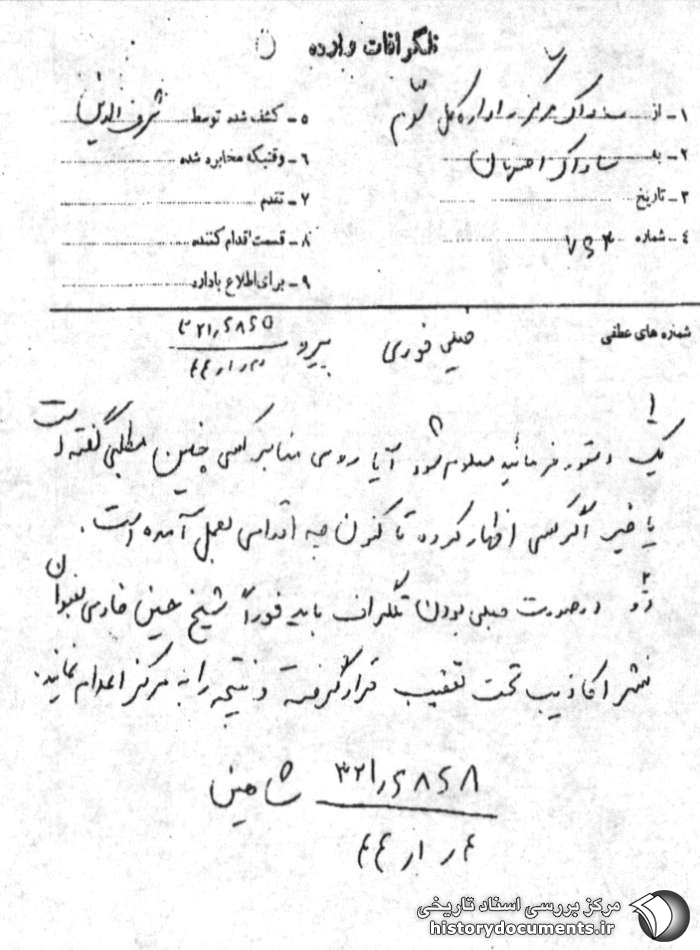 تلگرافات وارده
۱ - از ساواک مرکز اداره کل سوم
۲ - به ساواک اصفهان
۳ - تاریخ
۴ - شماره ۷۶۴
۵ - کشف شده توسط شرف‌الدین
۶ - وقتیکه مخابره شده
۷ - تقدم
۸ - قسمت اقدام کننده
۹ - برای اطلاع باداره
شماره های عطفی
خیلی فوری پیرو
۱
یک دستور فرمائید معلوم شود آیا روی منابر کسی چنین مطلبی گفته است
یا خیر اگر کسی اظهار کرده تا کنون چه اقدامی بعمل آمده است.
۲
دو درصورت جعلی بودن تلگراف باید فوراً شیخ حسین خادمی بعنوان
نشر اکاذیب تحت تعقیب قرار گرفته و نتیجه را به مرکز اعلام نمایند.
۳۲۱/۶۸۶۸
شاهین
مرکز بررسی اسناد تاریخی
historydocuments.ir